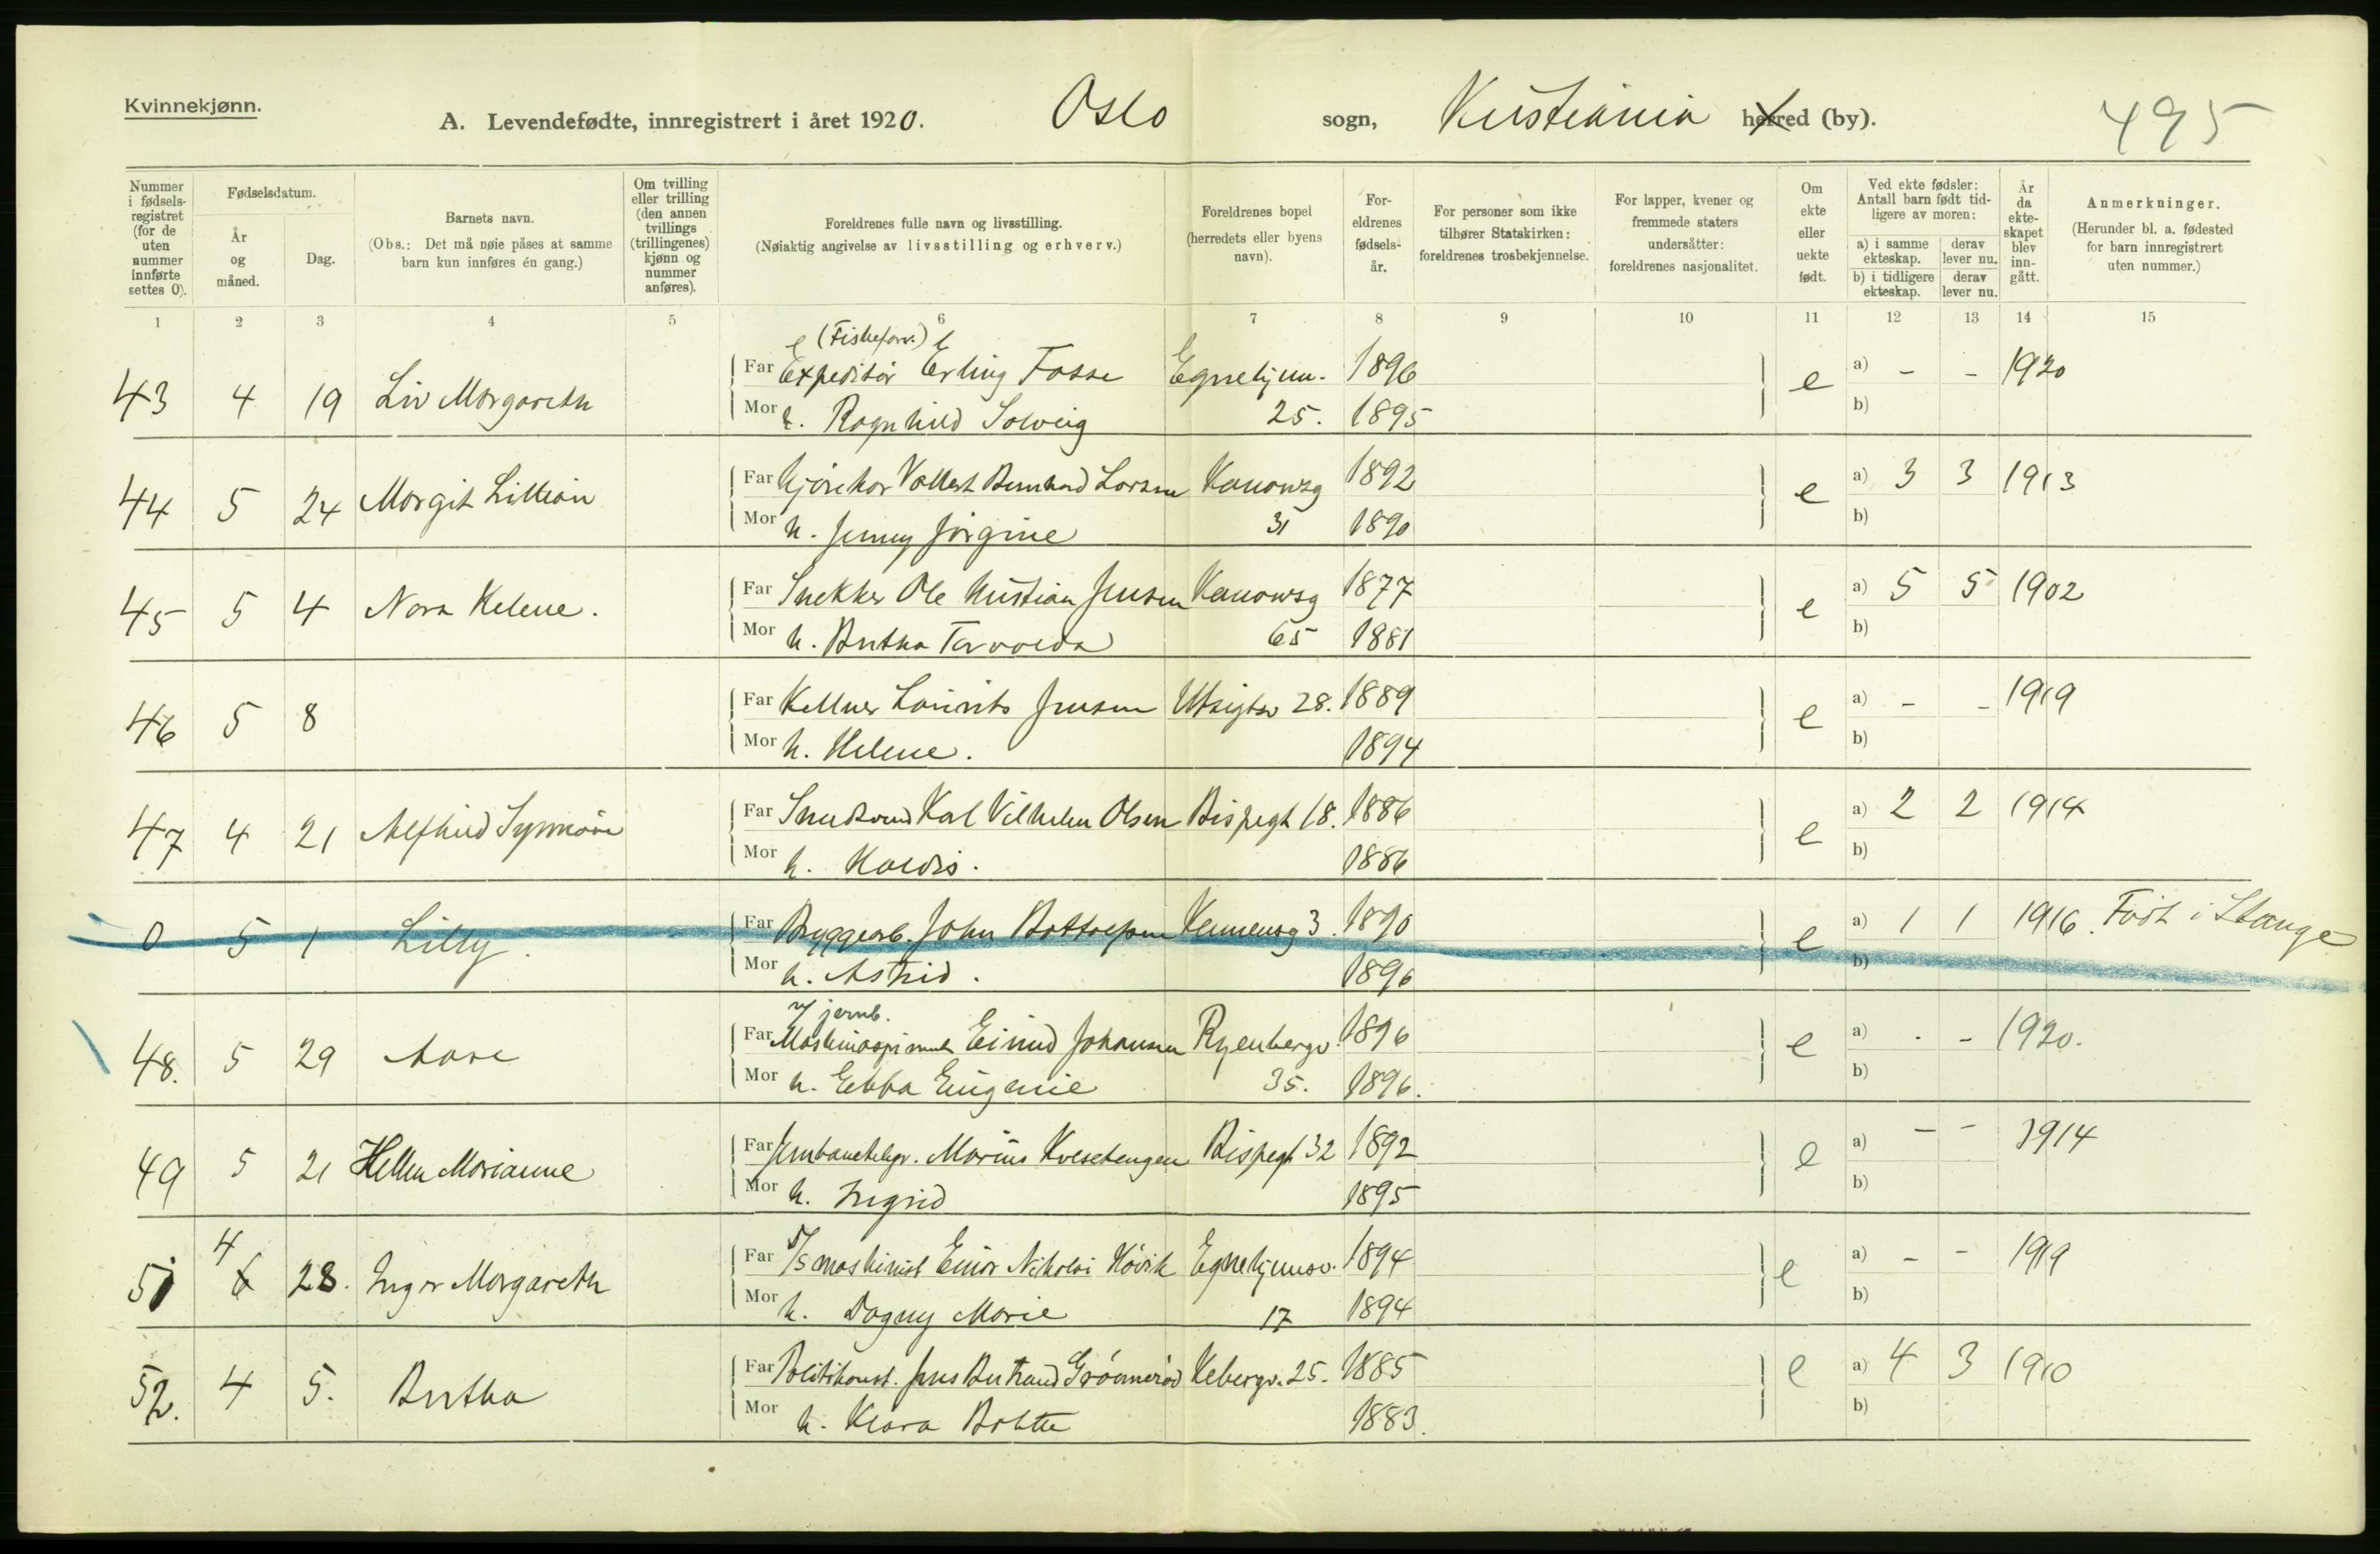 Kvinnekjønn.
A. Levendefødte, innregistrert i året 1920. Oslo sogn, Kristiania herred (by). 495
Nummer i fødselsregistret (for de uten nummer innførte settes 0).
Fødselsdatum.
År og måned.
Dag.
Barnets navn.
(Obs.: Det må nøie påses at samme barn kun innføres én gang.)
Om tvilling eller trilling (den annen tvillings (trillingenes) kjønn og nummer anføres).
Foreldrenes fulle navn og livsstilling.
(Nøiaktig angivelse av livsstilling og erhverv.)
Foreldrenes bopel (herredets eller byens navn).
Foreldrenes fødselsår.
For personer som ikke tilhører Statskirken: foreldrenes trosbekjennelse.
For lapper, kvener og fremmede staters undersåtter: foreldrenes nasjonalitet.
Om ekte eller uekte født.
Ved ekte fødsler: Antall barn født tidligere av moren:
a) i samme ekteskap. derav lever nu.
b) i tidligere ekteskap. derav lever nu.
År da ekteskapet blev inngått.
Anmerkninger.
(Herunder bl. a. fødested for barn innregistrert uten nummer.)
1 2 3 4 5 6 7 8 9 10 11 12 13 14 15
(Fiskeforr.)
43 4 19 Liv Margareth Far Expeditør Erling Fosse Egnehjem. 1896 e a) - - 1920
Mor h. Ragnhild Solveig 25. 1895 b)
44 5 24 Margit Lillian Far Kjørekar Vallert Bernhard Larsen Kanonsg 1892 e a) 3 3 1913
Mor h. Jenny Jørgine 31 1890 b)
45 5 4 Nora Helene. Far Snekker Ole Kristian Jensen Kanonsg 1877 e a) 5 5 1902
Mor h. Bertha 65 1881 b)
46 5 8 Far Kellner Laurits Jensen Utsigtsv 28. 1889 e a) - - 1919
Mor h. Helene. 1894 b)
47 4 21 Alfhild Synnøve Far Karl Vilhelm Olsen Bispegt 18. 1886 e a) 2 2 1914
Mor h. Valdis. 1886 b)
0 5 1 Lilly. Far Bryggearb. John Bottolfsen 3. 1890 e a) 1 1 1916. Født i Stange
Mor h. Astrid. 1896 b)
v/ jernb.
48. 5 29 Aase Far Einnd Johansen Ryenbergv. 1896 e a) . - 1920.
Mor h. Ebba Eugenie 35. 1896. b)
49 5 21 Hellen Marianne Far Jernbanetelegr. Marius Kvesetengen Bispegt 32 1892 e a) - - 1914
Mor h. Ingrid 1895 b)
51 4 28. Inger Margareth Far S/S maskinist Einar Nikolai Høvik Egnehjemsv. 1894 e a) - - 1919
Mor h. Dagny Marie 17 1894 b)
52. 4 5. Bertha Far Politikonst. Jens Bertrand Grønnerød Kebergv. 25. 1885 e a) 4 3 1910
Mor h. Klara Bolette 1883. b)